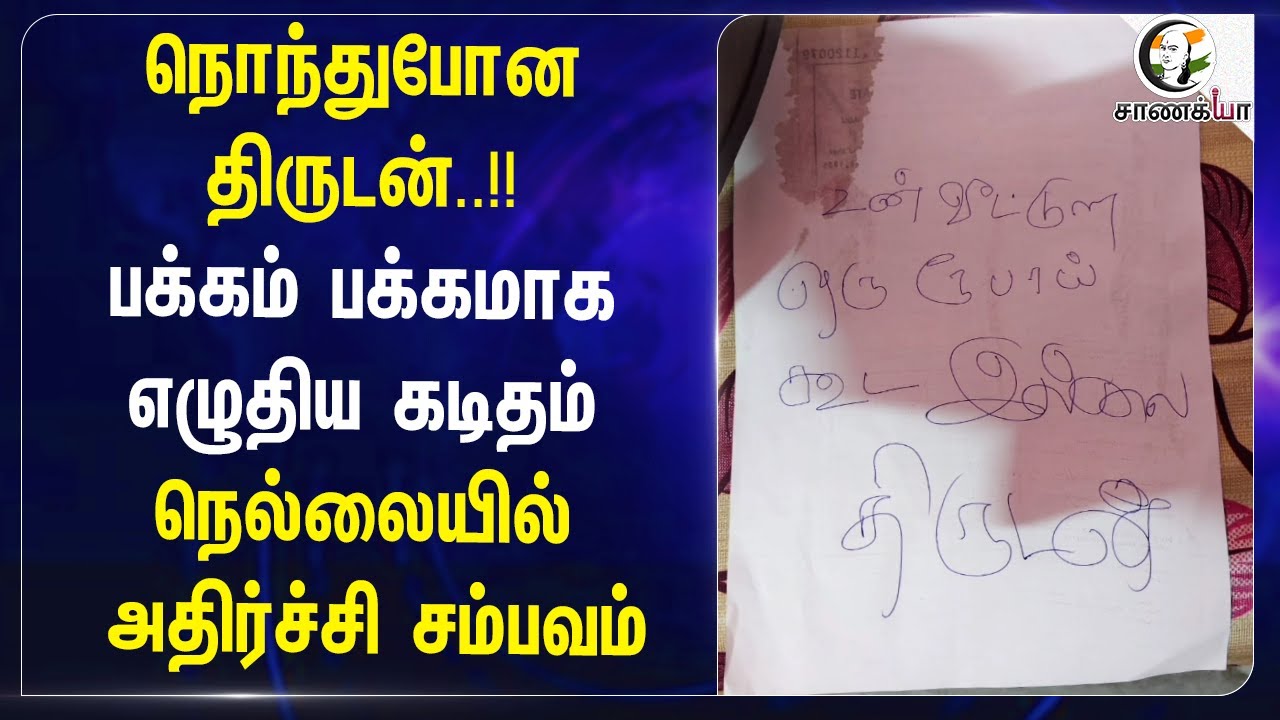 நொந்துபோன
திருடன்..!!
பக்கம் பக்கமாக
எழுதிய கடிதம்
நெல்லையில்
அதிர்ச்சி சம்பவம்
சாணக்யா
1120079
உன் வீட்டுள
ஒரு ரூபாய்
கூட இல்லை
திருடன்